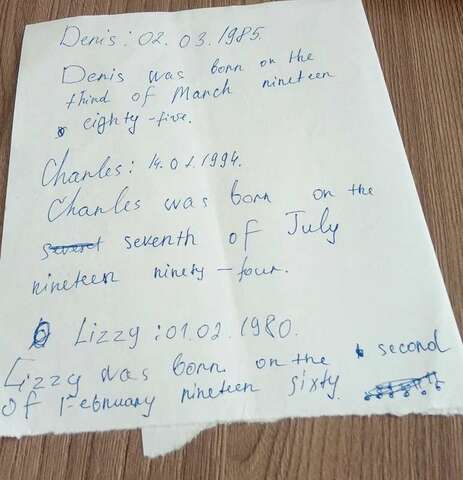 Denis: 02. 03. 1985.
Denis was born on the
third of March nineteen
eighty-five.
Charles: 14. 01. 1994.
Charles was born on the
seventh of July
nineteen ninety-four.
Lizzy: 01.02.1980.
Lizzy was born on the second
of February nineteen sixty.